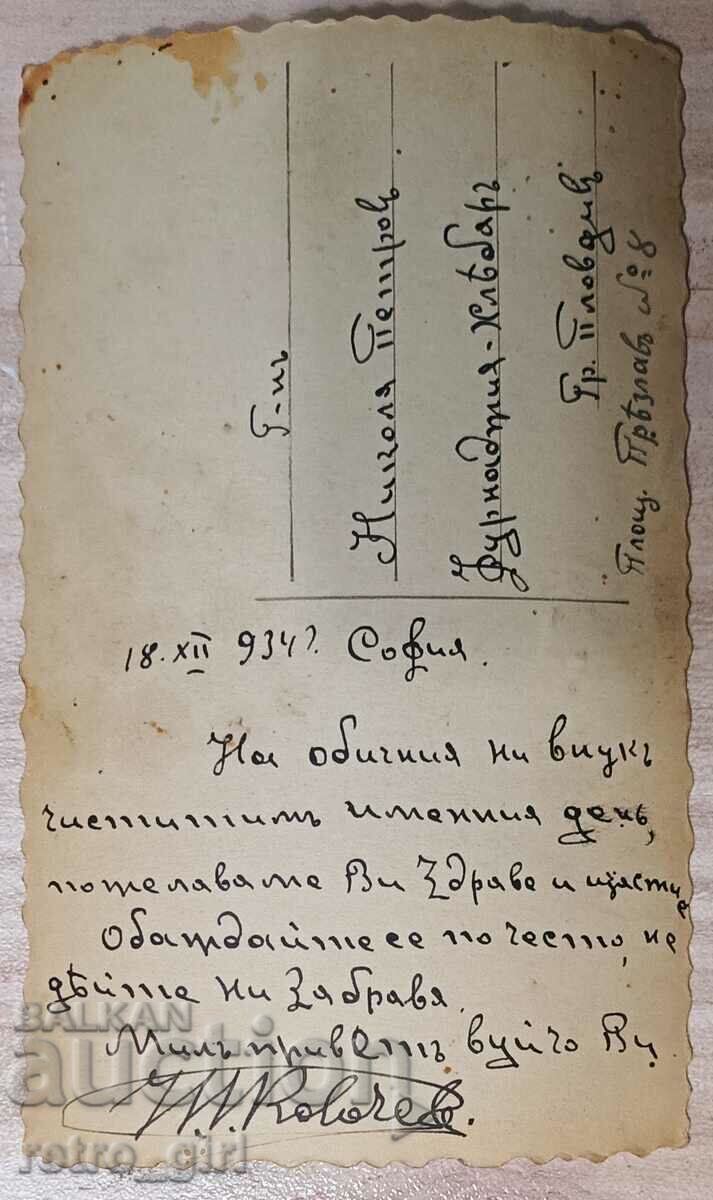 Г-нъ
Никола Петровъ
Фурнаджия-Хлѣбаръ
Гр. Пловдивъ
Площ. Прѣславъ № 8
18. XII 934 г. София.
На обичния ни внукъ
честитимъ именния день,
пожелаваме Ви Здраве и щастие
Обаждайте се по често, не
дѣйте ни Забравя.
Милъ приветъ вуйчо Ви
Ковачевъ.
BALKAN
auction
retro_girl